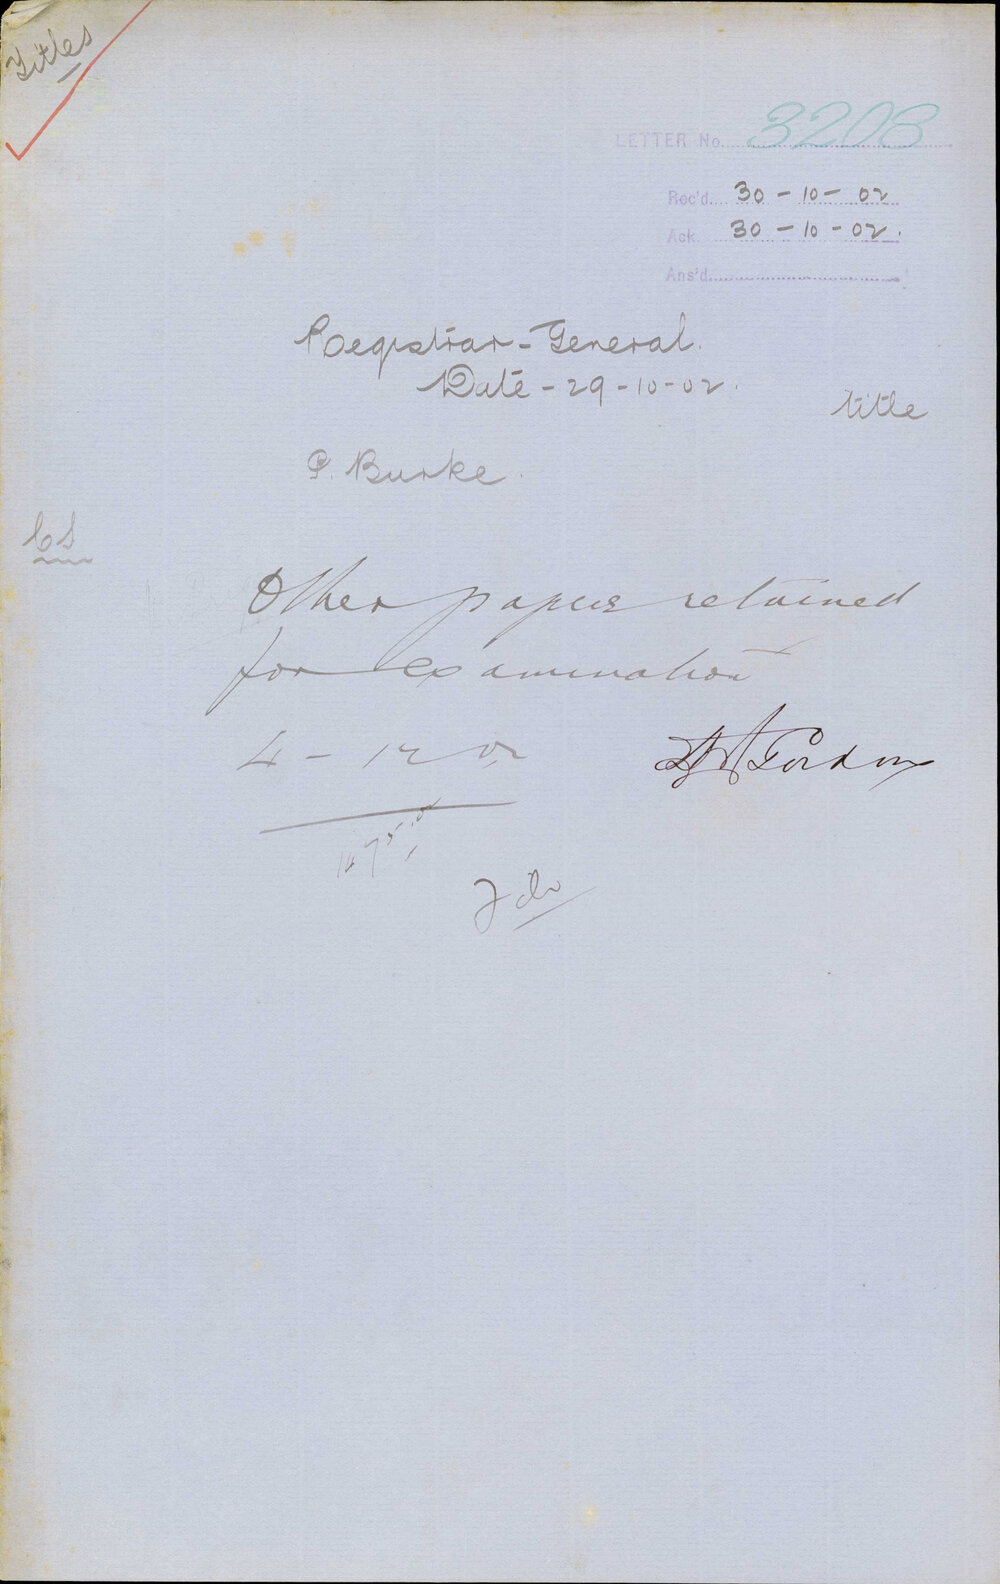 Titles
LETTER No. 3208
Rec'd. 30 - 10 - 02
Ack. 30 - 10 - 02.
Ans'd.
Registrar-General.
Date - 29 - 10 - 02.
title
P. Burke.
Other papers retained
for examination
4 - 12 02
Gordon